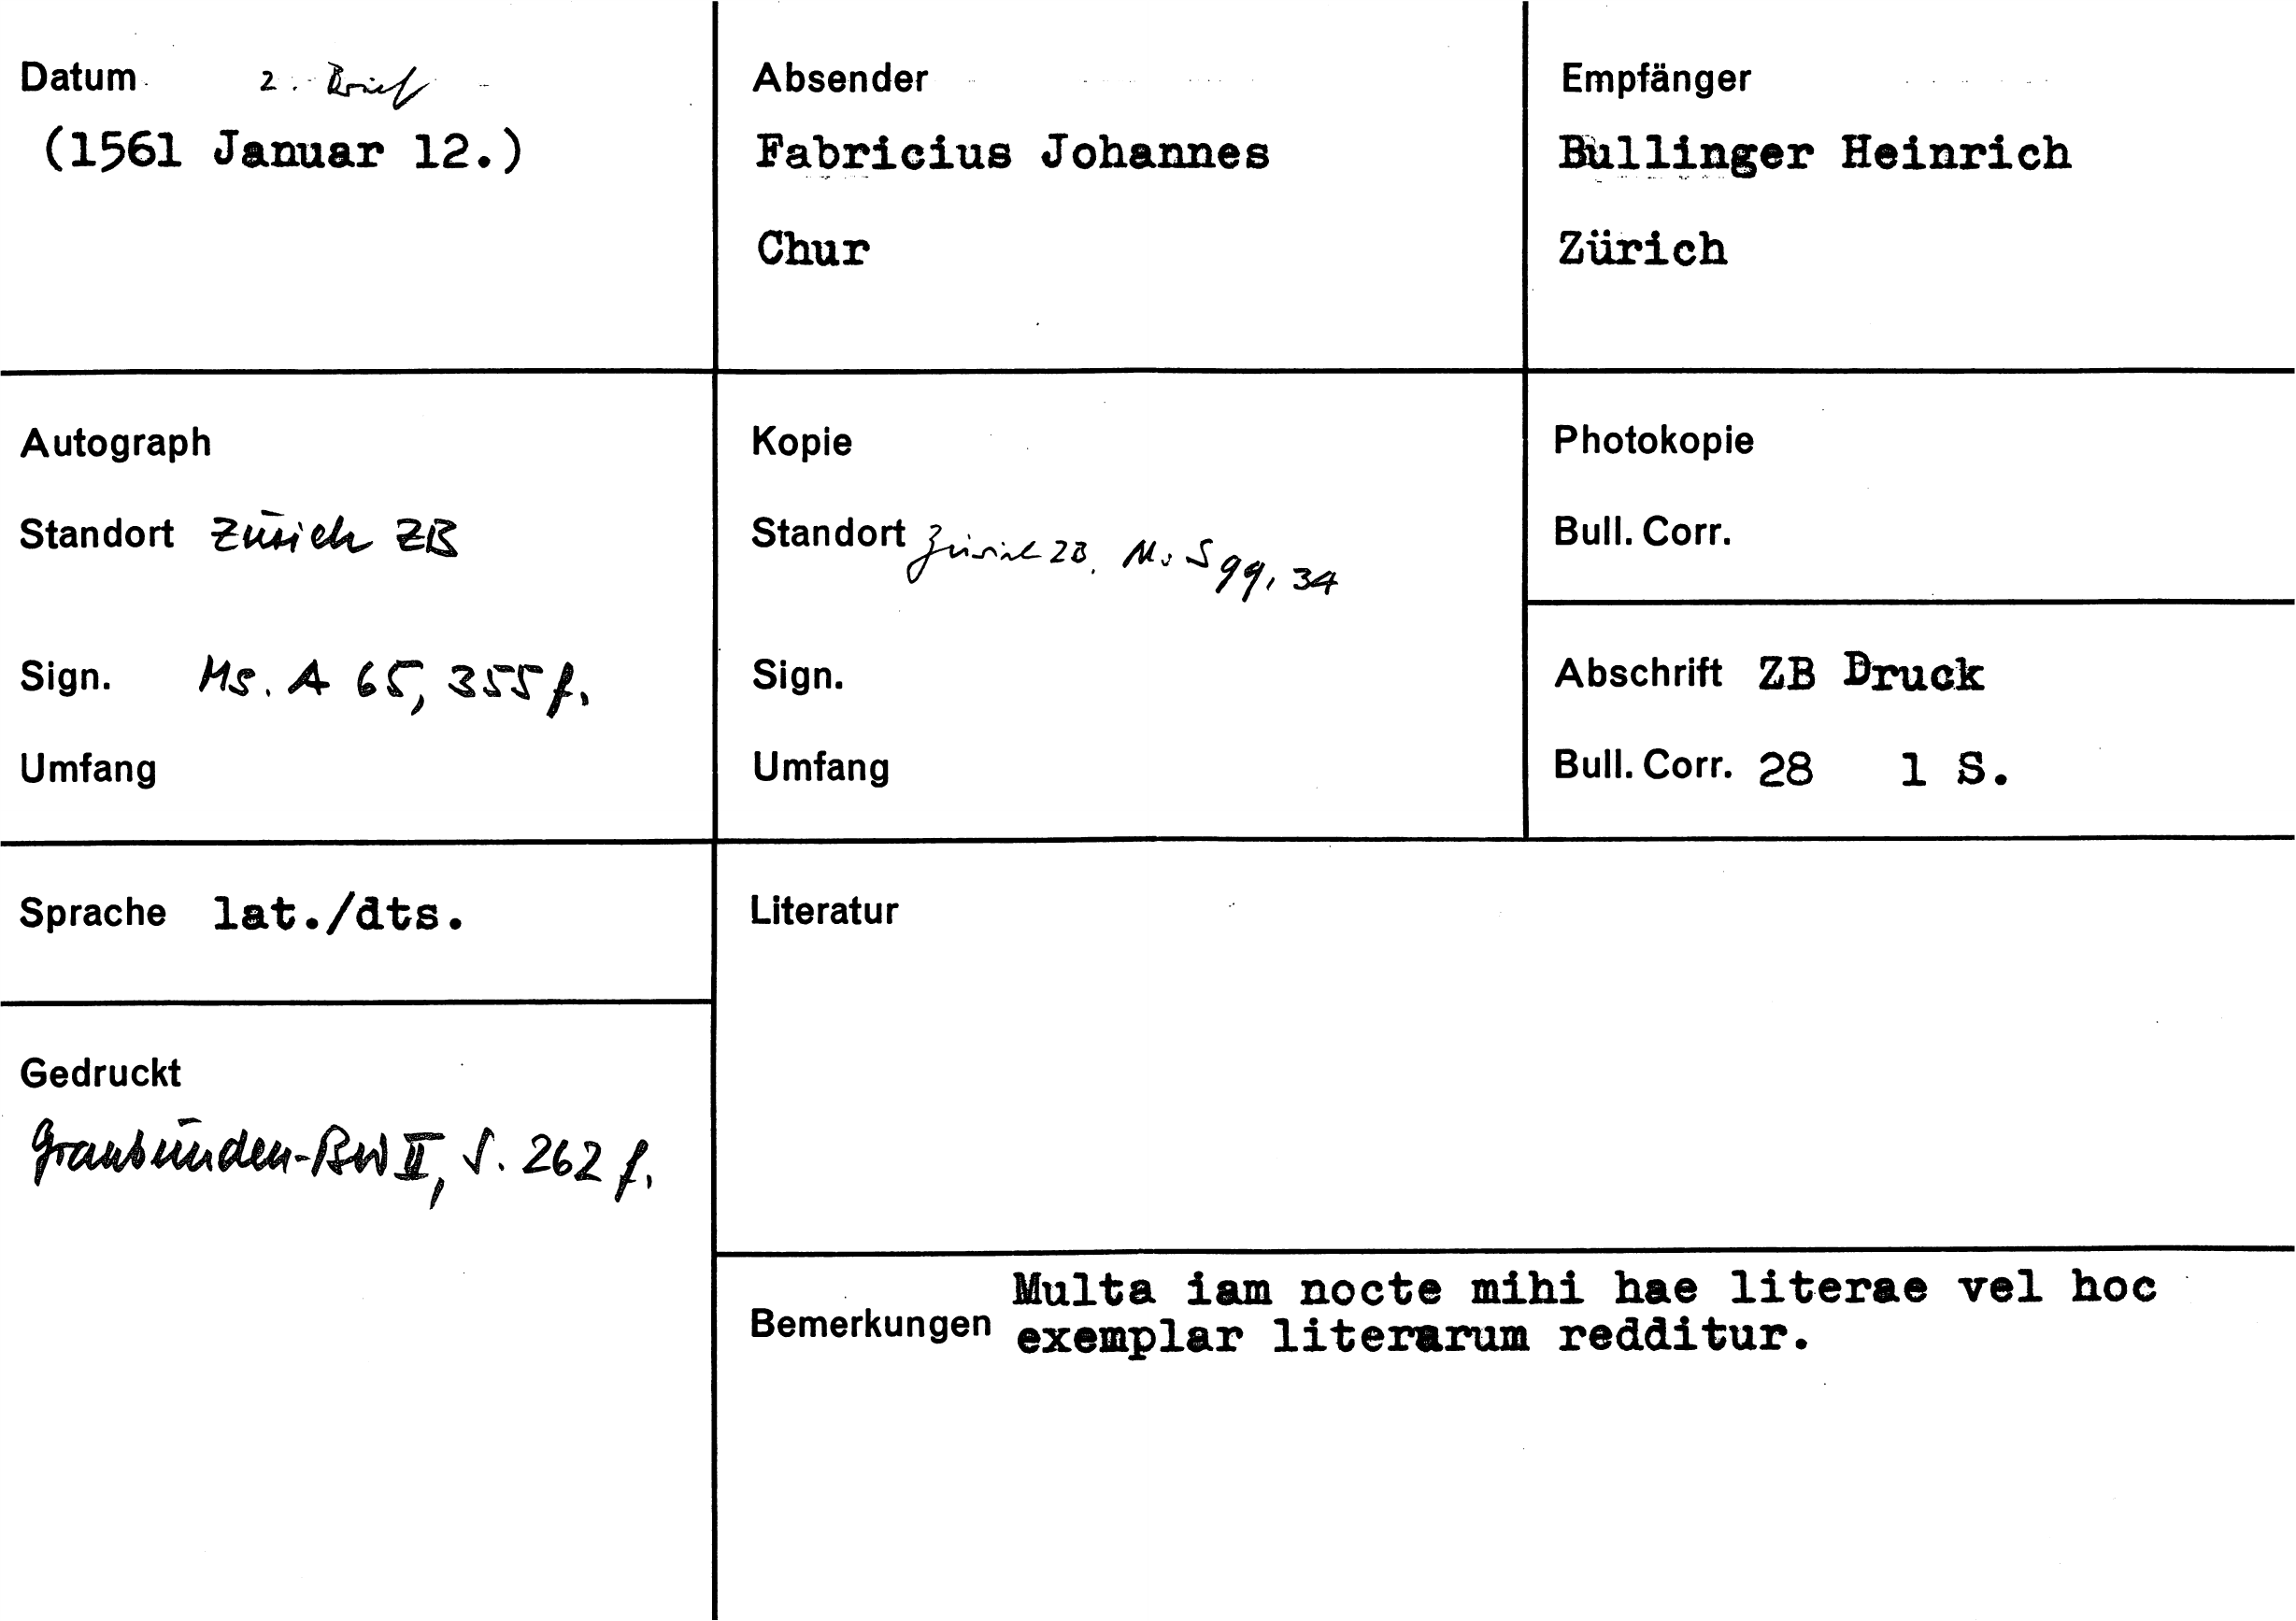 Datum 2. Brief
(1561 Januar 12.)
Absender
Fabricius Johannes
Chur
Empfänger
Bullinger Heinrich
Zürich
Autograph
Standort Zürich ZB
Sign. Ms. A 65, 355 f.
Umfang
Kopie
Standort Zürich ZB. Ms S 99, 34
Sign.
Umfang
Photokopie
Bull. Corr.
Abschrift ZB Druck
Bull. Corr. 28 1 S.
Sprache lat./dts.
Literatur
Gedruckt
Graubünden-BW II, S. 262 f.
Bemerkungen Multa iam nocte mihi hae literae vel hoc
exemplar literarum redditur.